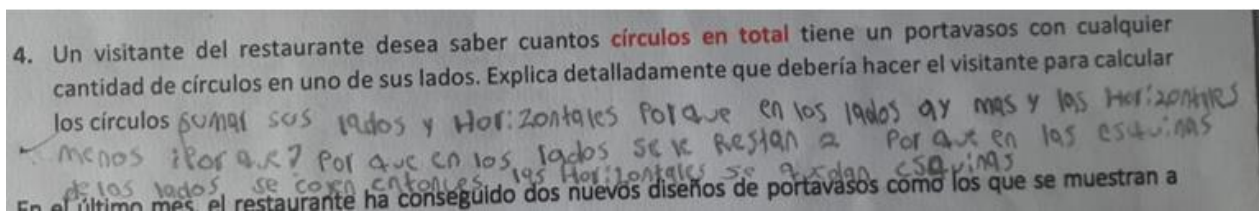 4. Un visitante del restaurante desea saber cuantos círculos en total tiene un portavasos con cualquier
cantidad de círculos en uno de sus lados. Explica detalladamente que debería hacer el visitante para calcular
los círculos sumar sus lados y Horizontales Porque en los lados ay mas y las Horizontales
menos ¿Por que? Por que en los lados se le Restan 2 Por que en las esquinas
de los lados se entonces las Horizontales se quedan esquinas
En el último mes, el restaurante ha conseguido dos nuevos diseños de portavasos como los que se muestran a